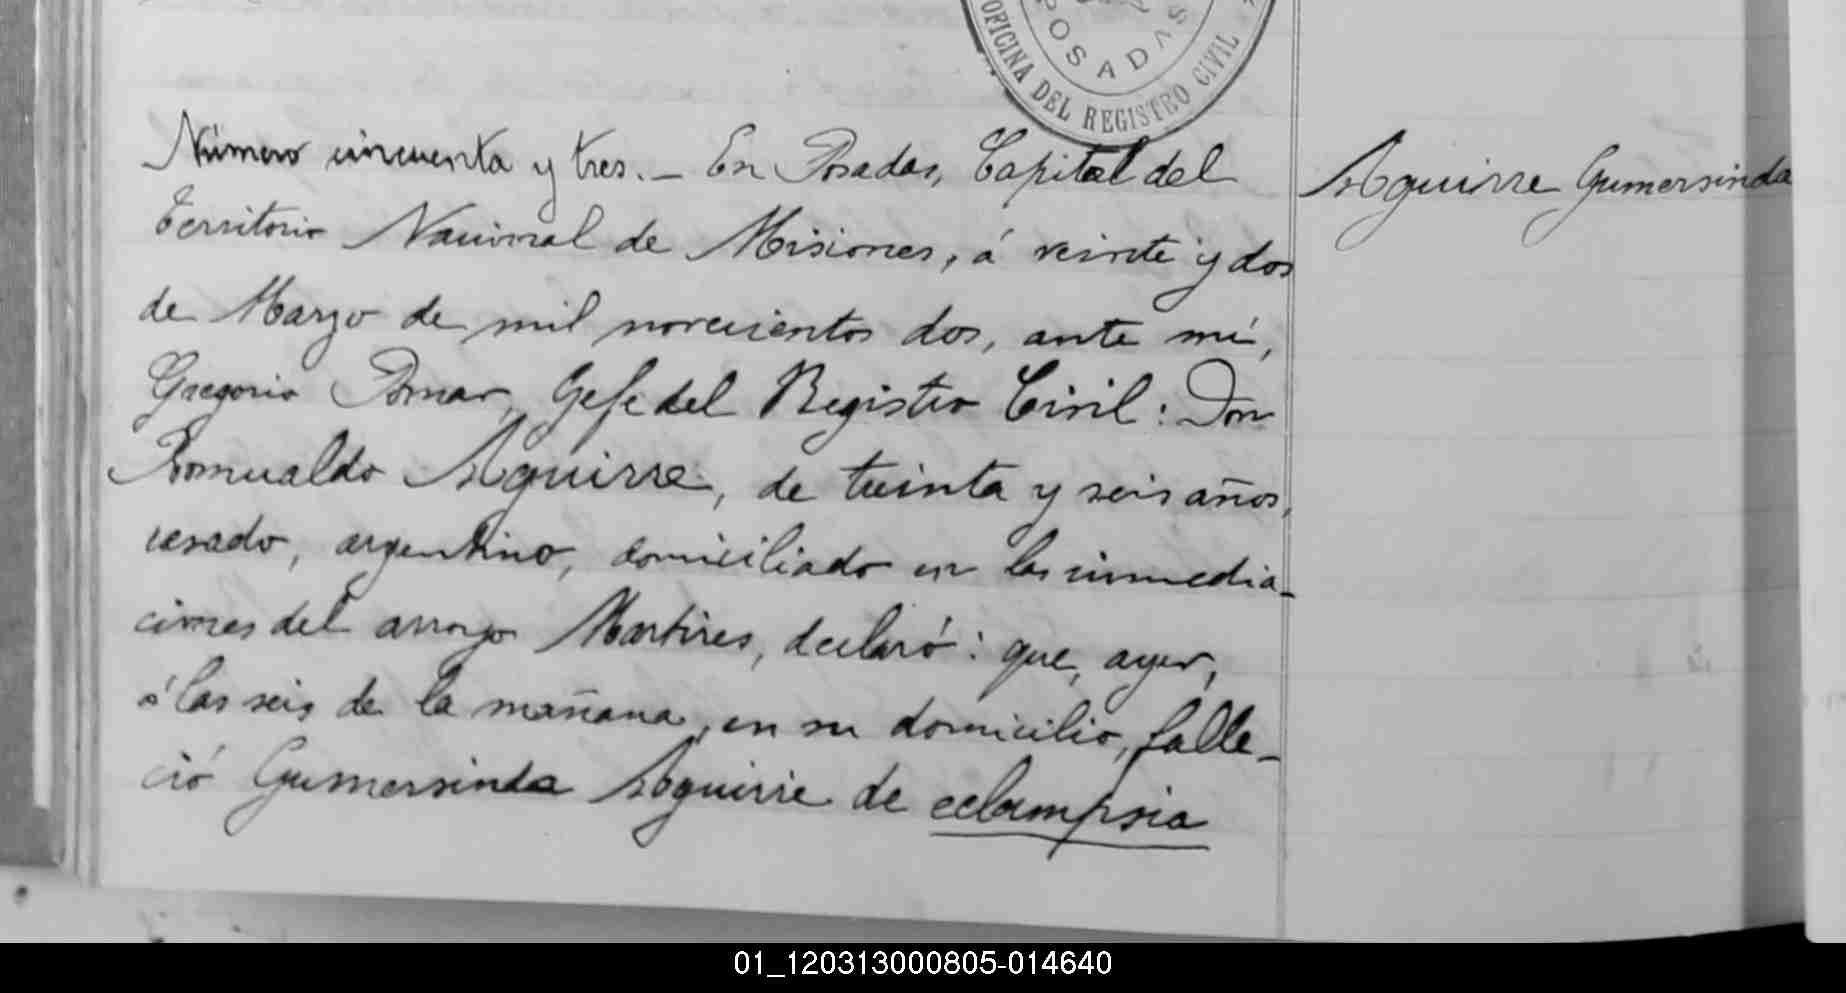 POSADAS
OFICINA DEL REGISTRO CIVIL
Número cincuenta y tres.- En Posadas, Capital del
Territorio Nacional de Misiones, á veinte y dos
de Marzo de mil novecientos dos, ante mí,
Gregorio Pomar, Gefe del Registro Civil: Don
Romualdo Aguirre, de treinta y seis años,
casado, argentino, domiciliado en las inmedia-
ciones del arroyo Martires, declaró: que, ayer,
á las seis de la mañana, en su domicilio, falle-
ció Gumersinda Aguirre de eclampsia
Aguirre Gumersinda
01_120313000805-014640